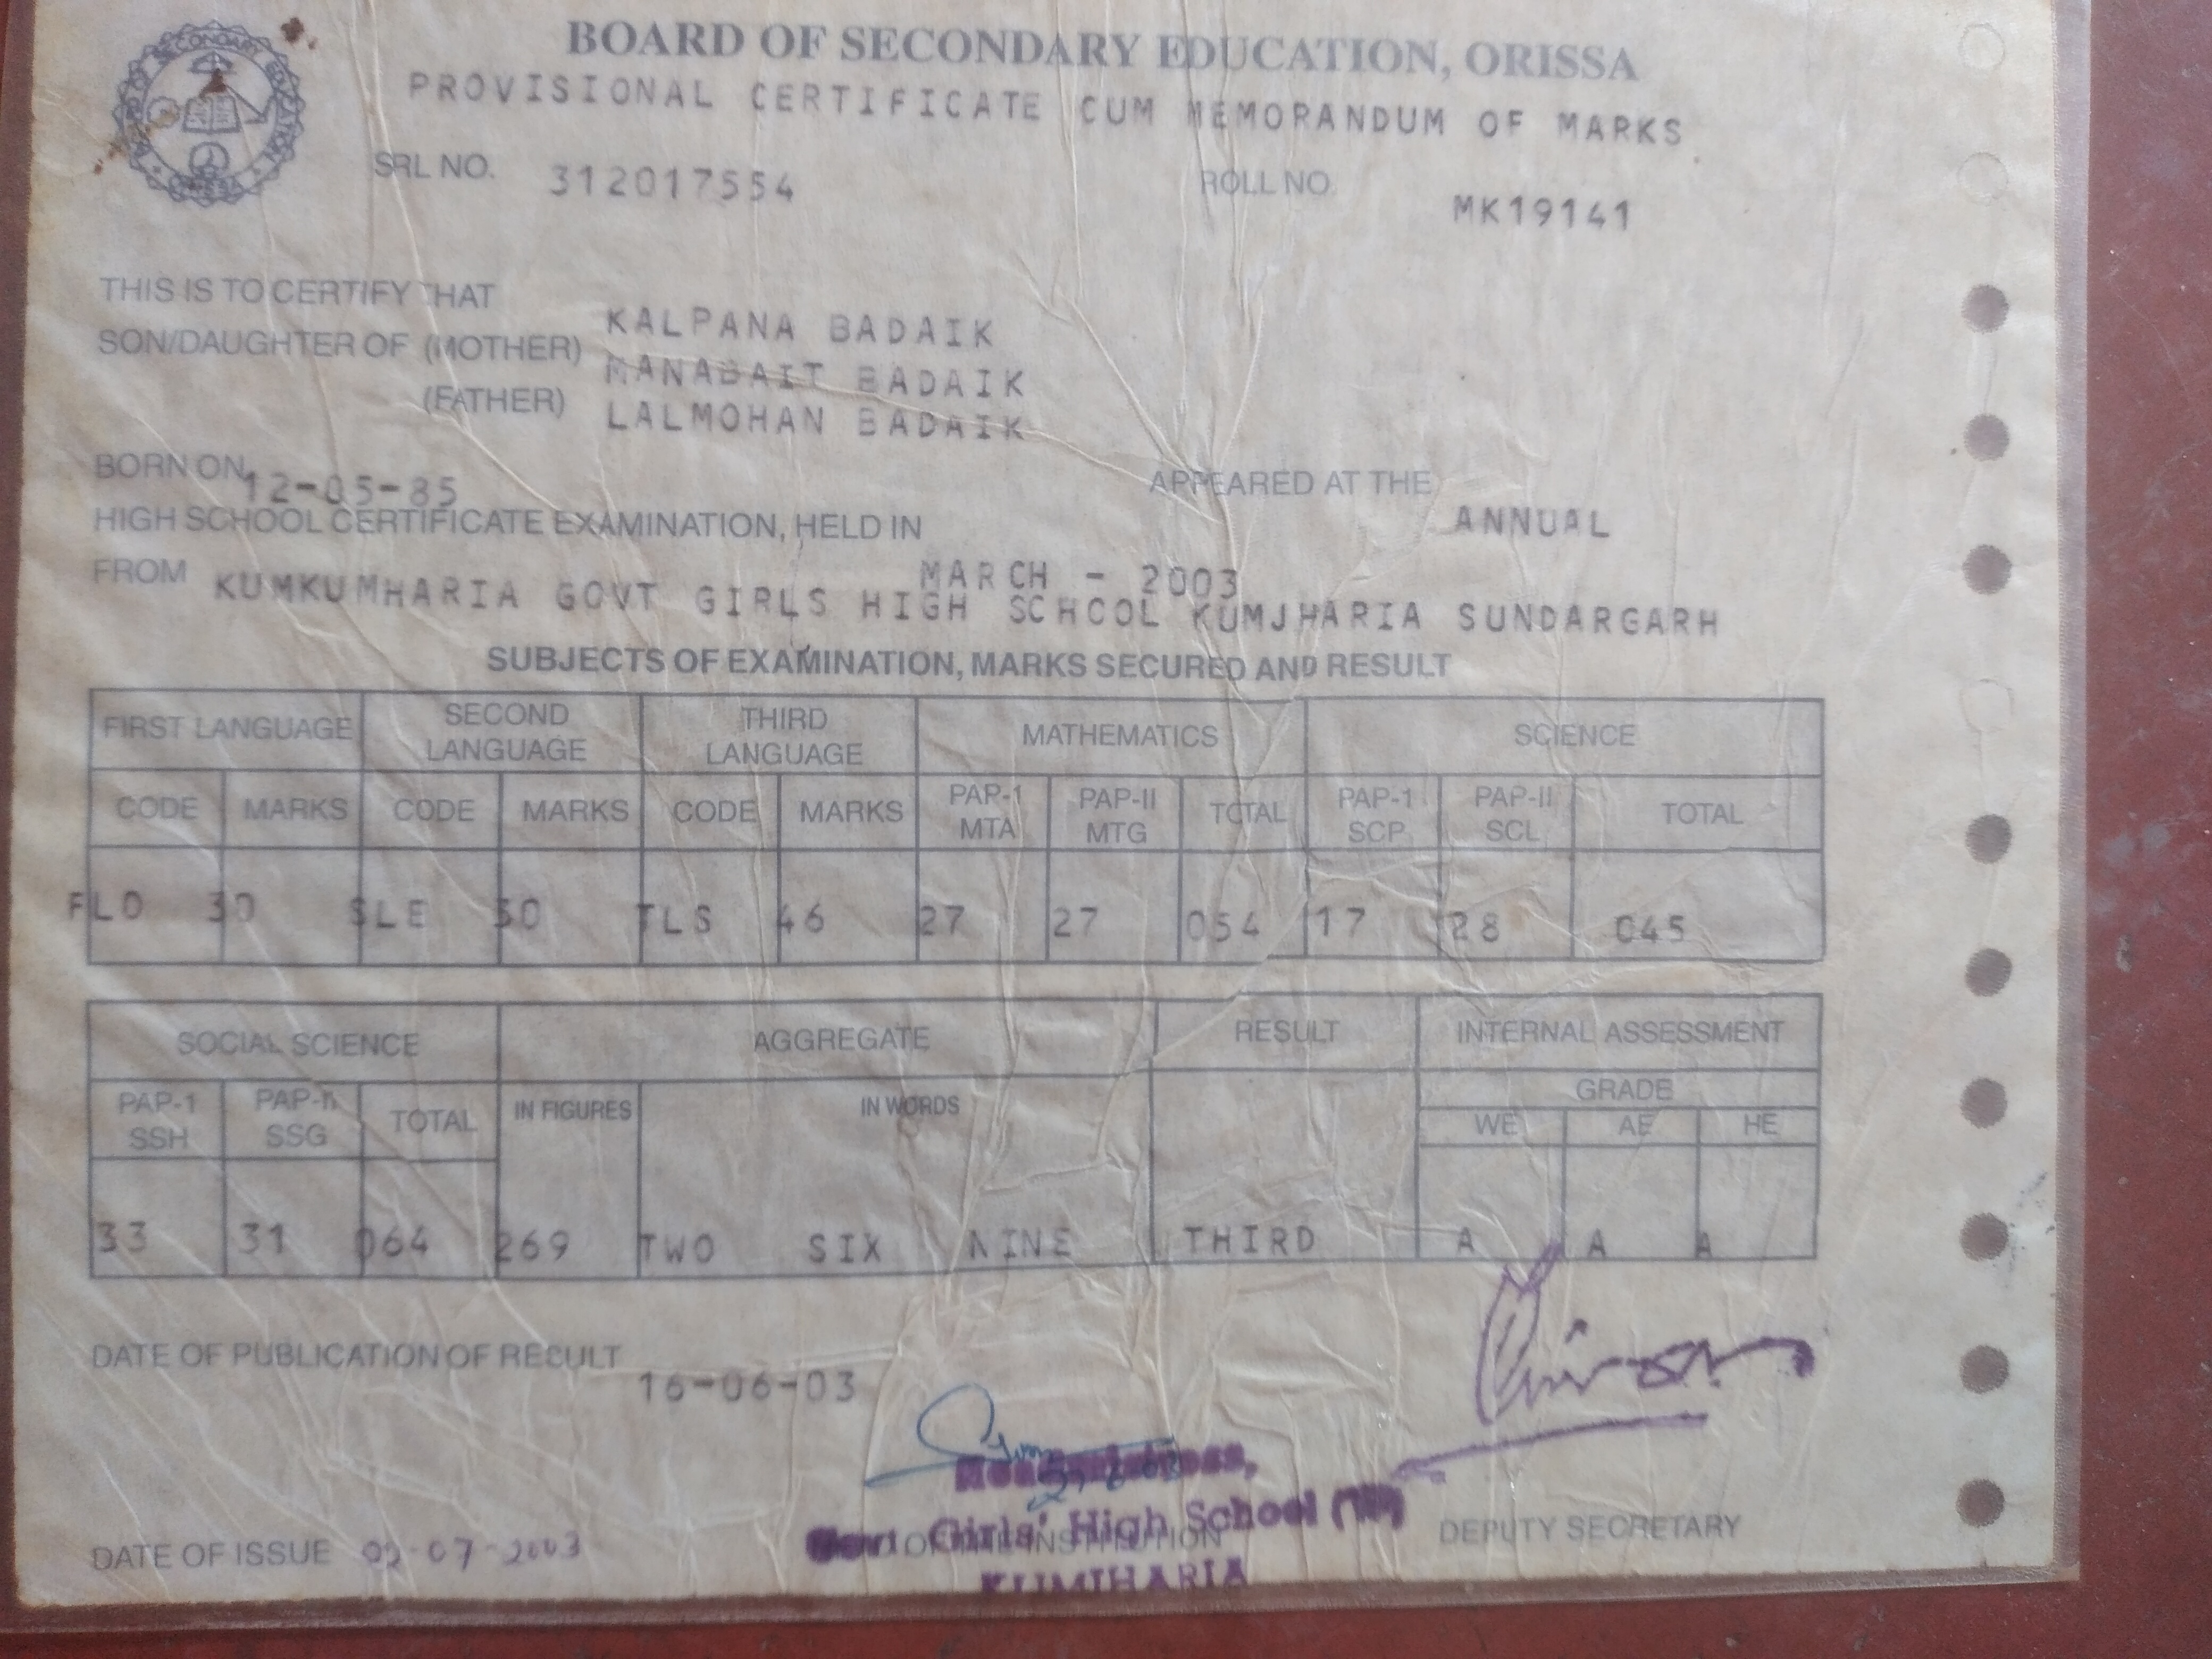 BOARD OF SECONDARY EDUCATION, ORISSA
PROVISIONAL CERTIFICATE CUM MEMORANDUM OF MARKS
SRL NO. 312017554 ROLL NO. MK19141
THIS IS TO CERTIFY THAT KALPANA BADAIK
SON/DAUGHTER OF (MOTHER) MANABAIT BADAIK
(FATHER) LALMOHAN BADAIK
BORN ON 12-05-85 APPEARED AT THE ANNUAL
HIGH SCHOOL CERTIFICATE EXAMINATION, HELD IN MARCH - 2003
FROM KUMKUMHARIA GOVT GIRLS HIGH SCHOOL KUMJHARIA SUNDARGARH
SUBJECTS OF EXAMINATION, MARKS SECURED AND RESULT
FIRST LANGUAGE SECOND LANGUAGE THIRD LANGUAGE MATHEMATICS SCIENCE
CODE MARKS CODE MARKS CODE MARKS PAP-1 MTA PAP-II MTG TOTAL PAP-1 SCP PAP-II SCL TOTAL
FLO 30 SLE 30 TLS 46 27 27 054 17 28 045
SOCIAL SCIENCE AGGREGATE RESULT INTERNAL ASSESSMENT
GRADE
PAP-1 SSH PAP-II SSG TOTAL IN FIGURES IN WORDS WE AE HE
33 31 064 269 TWO SIX NINE THIRD A A A
DATE OF PUBLICATION OF RESULT 16-06-03
Govt Girls' High School
KUMJHARIA
DATE OF ISSUE 02-07-2003 INSTITUTION DEPUTY SECRETARY